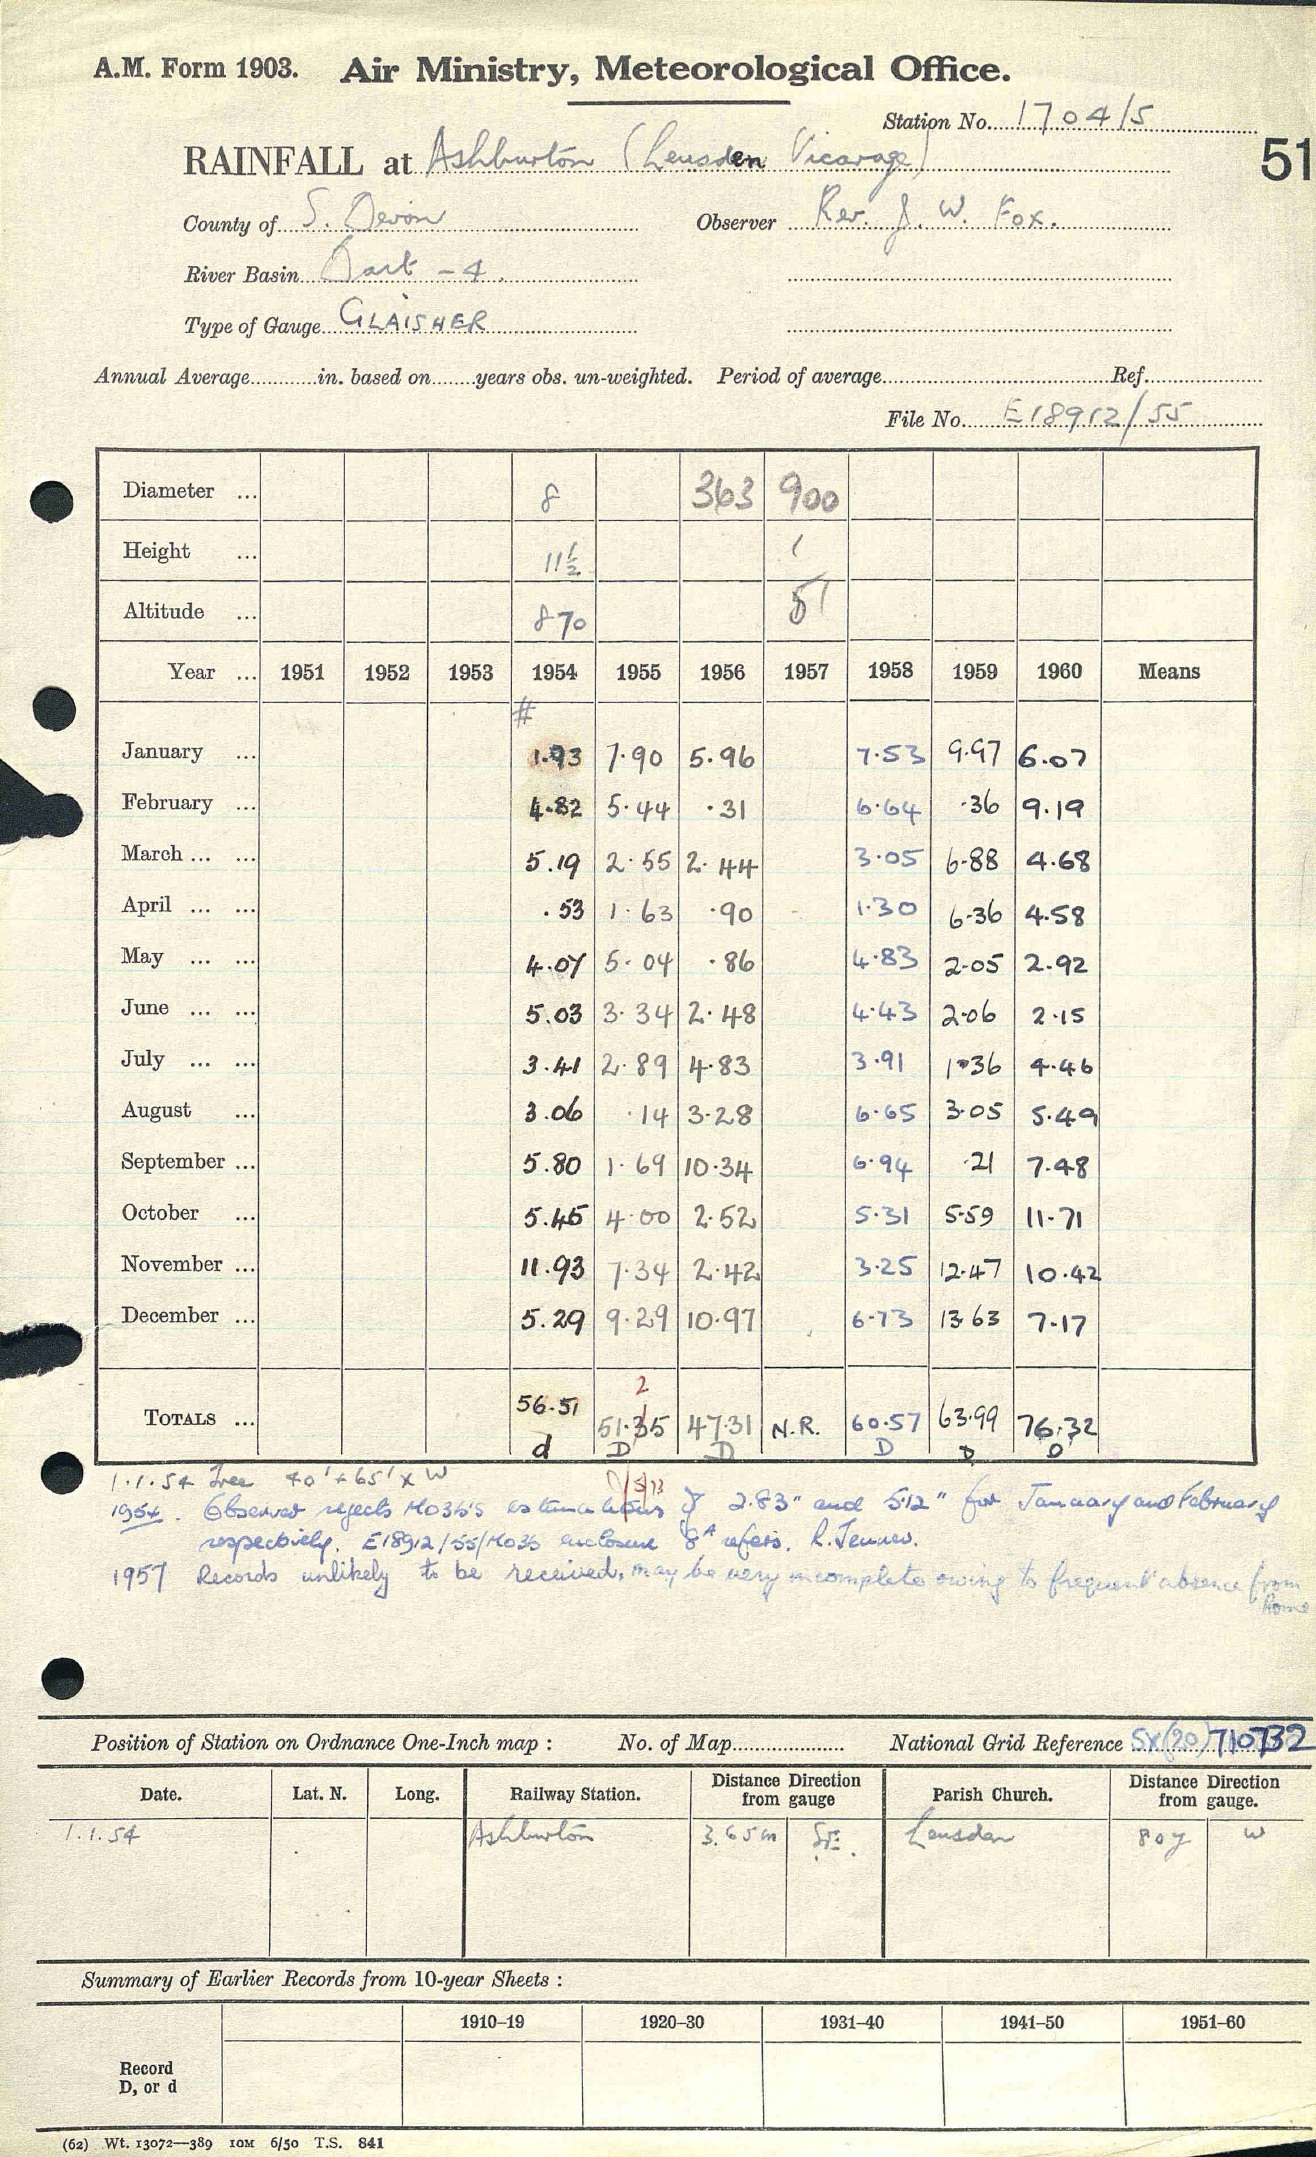 A.M. Form 1903. Air Ministry, Meteorological Office.
Station No. 1704/5
RAINFALL at Ashburton (Leusden Vicarage) 51
County of S. Devon Observer Rev. J. W. Fox.
River Basin Dart - 4.
Type of Gauge GLAISHER
Annual Average in. based on years obs. un-weighted. Period of average Ref.
File No. E18912/55
Diameter ... 8 363 900
Height ... 11½ 1
Altitude ... 870 51
Year ... 1951 1952 1953 1954 1955 1956 1957 1958 1959 1960 Means
#
January ... 1.93 7.90 5.96 7.53 9.97 6.07
February ... 4.82 5.44 .31 6.64 .36 9.19
March ... ... 5.19 2.55 2.44 3.05 6.88 4.68
April ... ... .53 1.63 .90 1.30 6.36 4.58
May ... ... 4.07 5.04 .86 4.83 2.05 2.92
June ... ... 5.03 3.34 2.48 4.43 2.06 2.15
July ... ... 3.41 2.89 4.83 3.91 1.36 4.46
August ... 3.06 .14 3.28 6.65 3.05 5.49
September ... 5.80 1.69 10.34 6.94 .21 7.48
October ... 5.45 4.00 2.52 5.31 5.59 11.71
November ... 11.93 7.34 2.42 3.25 12.47 10.42
December ... 5.29 9.29 10.97 6.73 13.63 7.17
2
TOTALS ... 56.51 51.35 47.31 N.R. 60.57 63.99 76.32
d D D D D D
1.1.54 Tree 40' + 65' x W
1954. Observer rejects MO3b's estimations of 2.83" and 5.12" for January and February
respectively. E18912/55/MO3b enclosure 8A refers. R. Jenner.
1957 Records unlikely to be received, may be very incomplete owing to frequent absence from
Home
Position of Station on Ordnance One-Inch map : No. of Map National Grid Reference SX(20) 710732
Date. Lat. N. Long. Railway Station. Distance Direction from gauge Parish Church. Distance Direction from gauge.
1.1.54 Ashburton 3.65m SE. Leusdon 80y W
Summary of Earlier Records from 10-year Sheets :
1910-19 1920-30 1931-40 1941-50 1951-60
Record
D, or d
(62) Wt. 13072—389 10M 6/50 T.S. 841